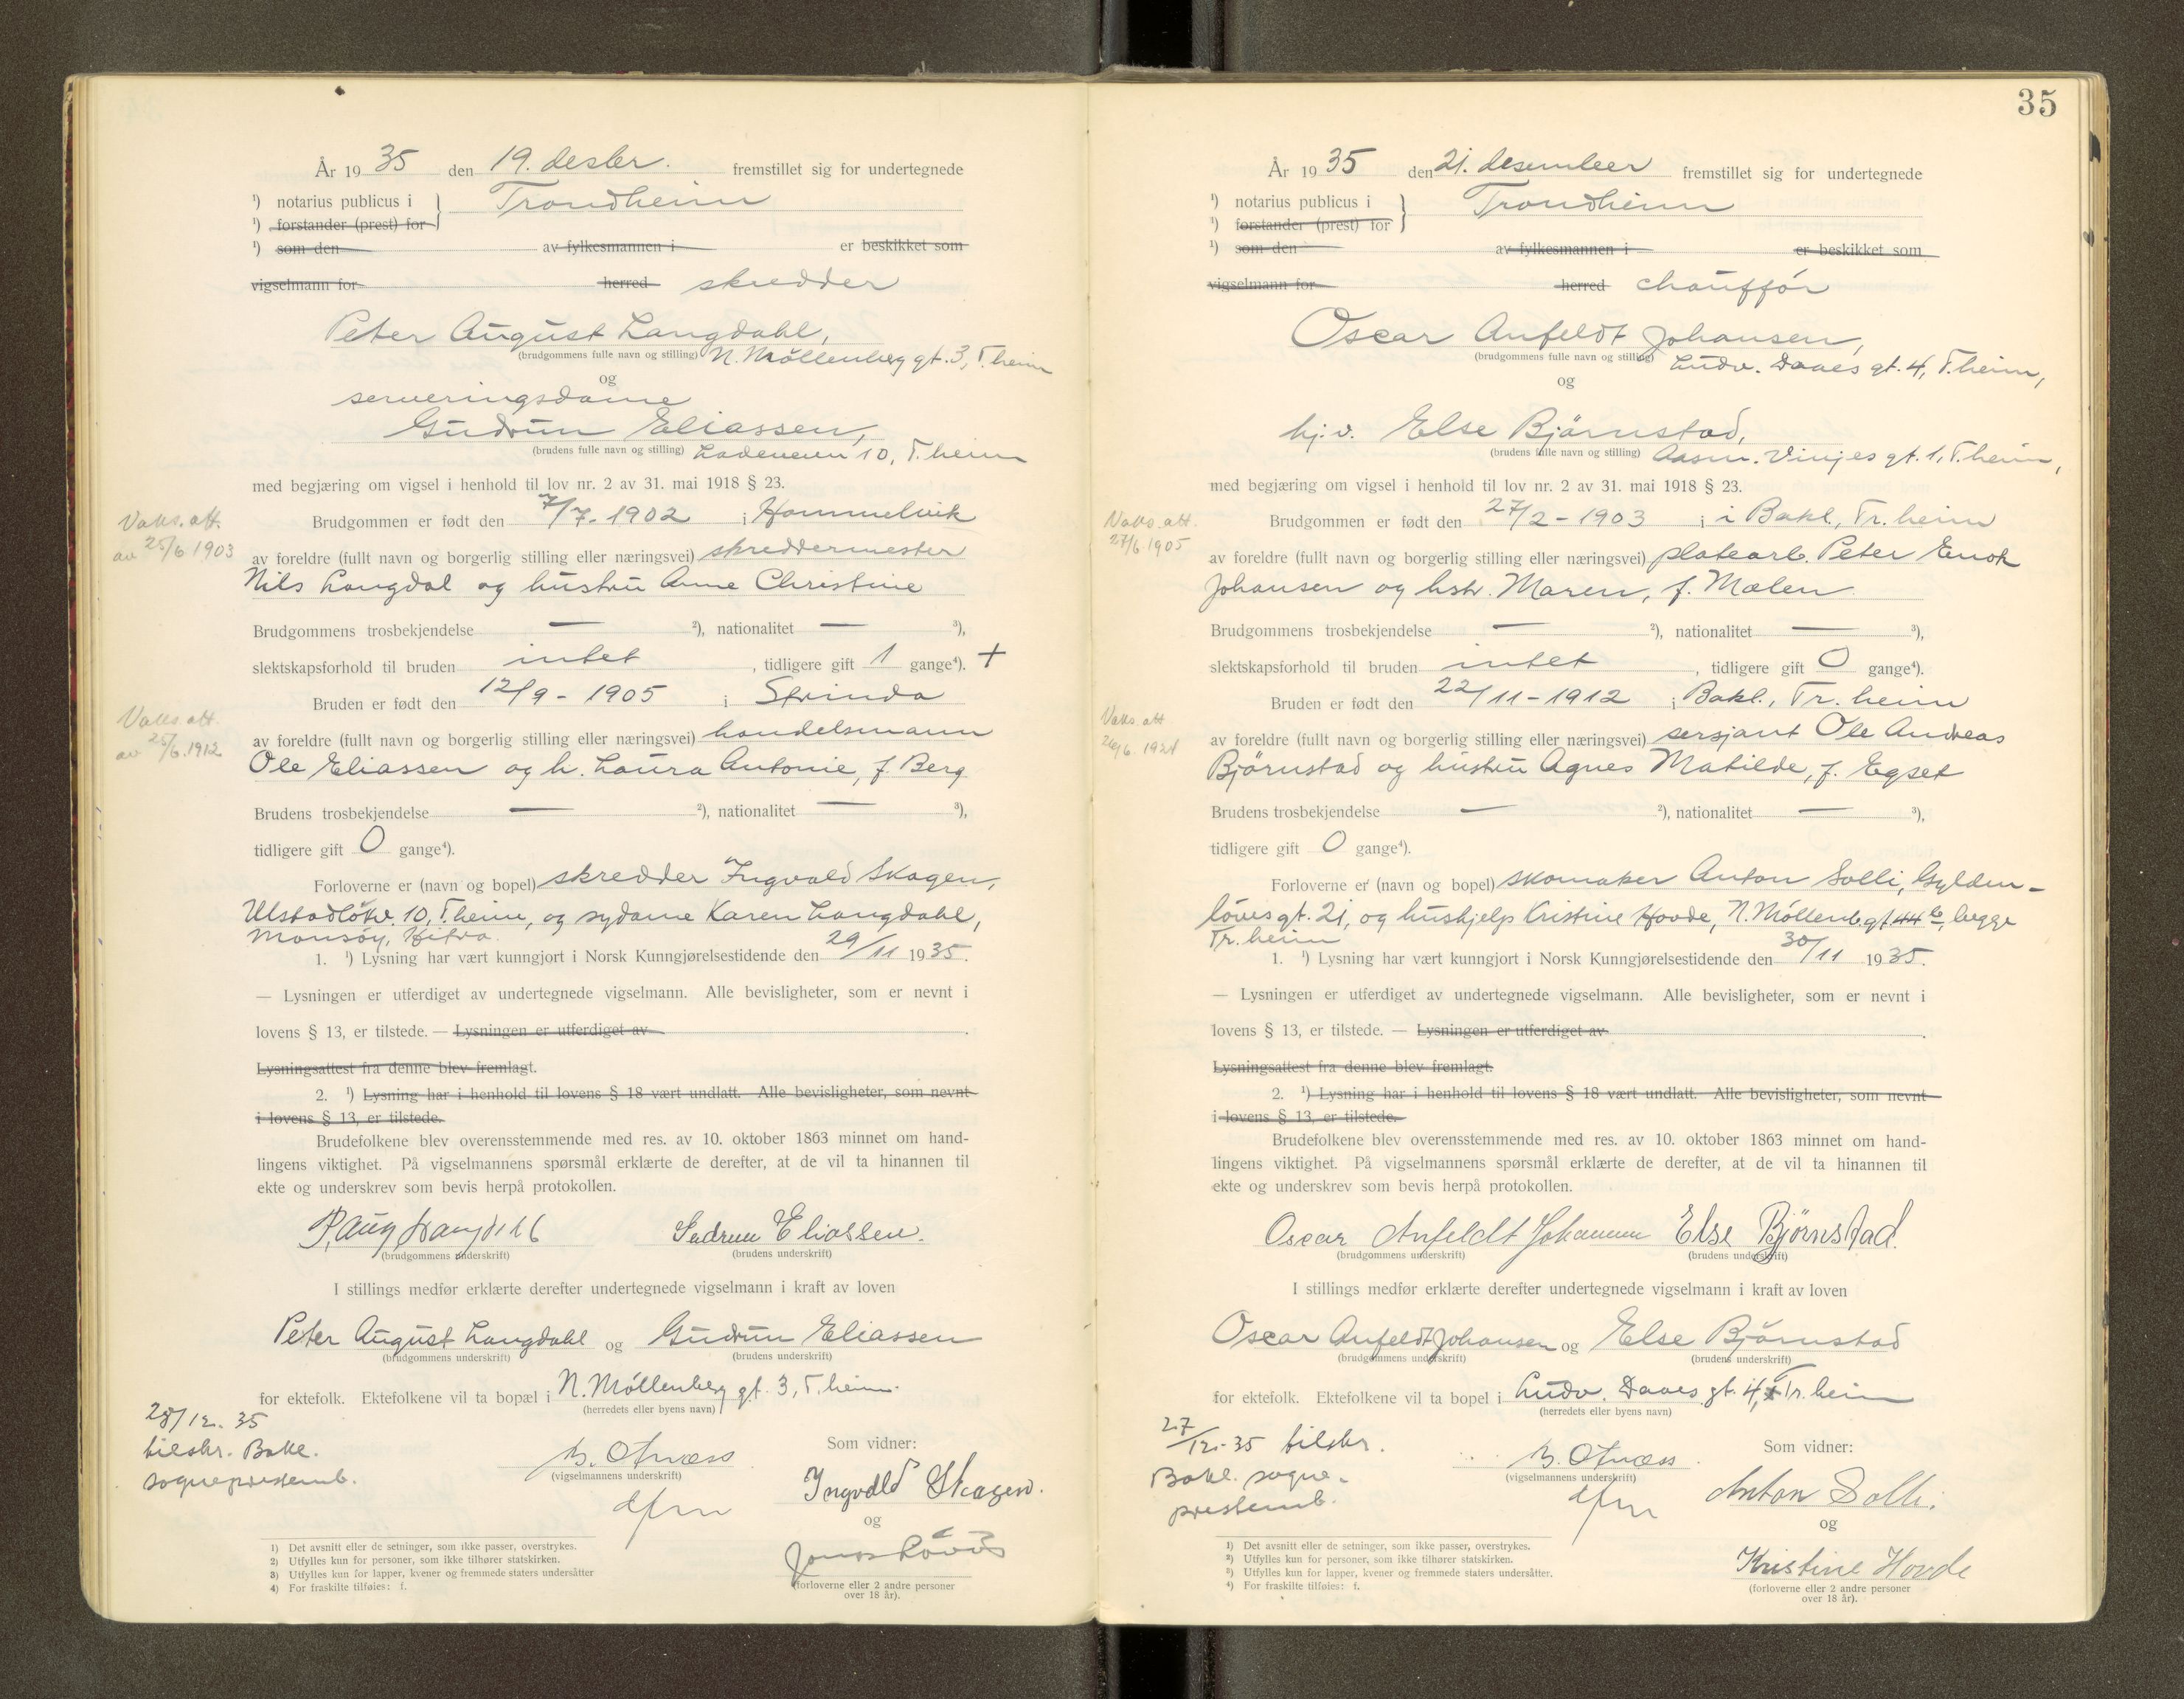 År 1935 den 19. desbr. fremstillet sig for undertegnede
¹) notarius publicus i Trondheim
¹) forstander (prest) for
¹) som den av fylkesmannen i er beskikket som
vigselmann for herred skredder
Peter August Langdahl,
(brudgommens fulle navn og stilling) N. Möllenberg gt. 3, T.heim
og
serveringsdame
Gudrun Eliassen,
(brudens fulle navn og stilling) Ladeveien 10, T.heim
med begjæring om vigsel i henhold til lov nr. 2 av 31. mai 1918 § 23.
Vaks. att.
av 25/6 1903
Brudgommen er født den 7/7-1902 i Hommelvik
av foreldre (fullt navn og borgerlig stilling eller næringsvei) skreddermester
Nils Langdal og hustru Anne Christine
Brudgommens trosbekjendelse — ²), nationalitet — ³),
slektskapsforhold til bruden intet, tidligere gift 1 gange⁴). +
Bruden er født den 12/9-1905 i Strinda
Vaks. att.
av 25/6.1912
av foreldre (fullt navn og borgerlig stilling eller næringsvei) handelsmann
Ole Eliassen og h. Laura Antonie, f. Berg
Brudens trosbekjendelse — ²), nationalitet — ³),
tidligere gift 0 gange⁴).
Forloverne er (navn og bopel) skredder Ingvald Skagen,
Ulstadløkv. 10, T.heim, og sydame Karen Langdahl,
Mansøy, Hitra.
1. ¹) Lysning har vært kunngjort i Norsk Kunngjørelsestidende den 29/11 1935.
— Lysningen er utferdiget av undertegnede vigselmann. Alle bevisligheter, som er nevnt i
lovens § 13, er tilstede. — Lysningen er utferdiget av .
Lysningsattest fra denne blev fremlagt.
2. ¹) Lysning har i henhold til lovens § 18 vært undlatt. Alle bevisligheter, som nevnt
i lovens § 13, er tilstede.
Brudefolkene blev overensstemmende med res. av 10. oktober 1863 minnet om hand-
lingens viktighet. På vigselmannens spørsmål erklærte de derefter, at de vil ta hinannen til
ekte og underskrev som bevis herpå protokollen.
P. Aug Langdahl Gudrun Eliassen.
(brudgommens underskrift) (brudens underskrift)
I stillings medfør erklærte derefter undertegnede vigselmann i kraft av loven
Peter August Langdahl og Gudrun Eliassen
(brudgommens underskrift) (brudens underskrift)
for ektefolk. Ektefolkene vil ta bopæl i N. Möllenberg gt. 3, T.heim.
(herredets eller byens navn)
28/12. 35
tilskr. Bakl.
sogneprestemb.
Som vidner:
(vigselmannens underskrift)
Ingvald Skagen.
og
(forloverne eller 2 andre personer
over 18 år).
1) Det avsnitt eller de setninger, som ikke passer, overstrykes.
2) Utfylles kun for personer, som ikke tilhører statskirken.
3) Utfylles kun for lapper, kvener og fremmede staters undersåtter
4) For fraskilte tilføies: f.
35
År 1935 den 21. desember fremstillet sig for undertegnede
¹) notarius publicus i Trondheim
¹) forstander (prest) for
¹) som den av fylkesmannen i er beskikket som
vigselmann for herred chauffør
Oscar Anfeldt Johansen,
(brudgommens fulle navn og stilling) Ludv. Daaes gt. 4, T.heim,
og
hj.v. Else Björnstad,
(brudens fulle navn og stilling) Aasm. Vinjes gt. 1, T.heim,
med begjæring om vigsel i henhold til lov nr. 2 av 31. mai 1918 § 23.
Vaks. att.
27/6 1905
Brudgommen er født den 27/2-1903 i i Bakl., Tr.heim
av foreldre (fullt navn og borgerlig stilling eller næringsvei) platearb. Peter Enok
Johansen og hstr. Maren, f. Mælen
Brudgommens trosbekjendelse — ²), nationalitet — ³),
slektskapsforhold til bruden intet, tidligere gift 0 gange⁴).
Bruden er født den 22/11-1912 i Bakl., Tr.heim
Vaks. att
av foreldre (fullt navn og borgerlig stilling eller næringsvei) sersjant Ole Andreas
Björnstad og hustru Agnes Matilde, f. Egset
Brudens trosbekjendelse — ²), nationalitet — ³),
tidligere gift 0 gange⁴).
Forloverne er (navn og bopel) skomaker Anton Solli, Gylden-
löves gt. 21, og hushjelp Kristine Hovde, N. Möllenb.gt 44 b, begge
Tr.heim
1. ¹) Lysning har vært kunngjort i Norsk Kunngjørelsestidende den 30/11 1935.
— Lysningen er utferdiget av undertegnede vigselmann. Alle bevisligheter, som er nevnt i
lovens § 13, er tilstede. — Lysningen er utferdiget av .
Lysningsattest fra denne blev fremlagt.
2. ¹) Lysning har i henhold til lovens § 18 vært undlatt. Alle bevisligheter, som nevnt
i lovens § 13, er tilstede.
Brudefolkene blev overensstemmende med res. av 10. oktober 1863 minnet om hand-
lingens viktighet. På vigselmannens spørsmål erklærte de derefter, at de vil ta hinannen til
ekte og underskrev som bevis herpå protokollen.
Oscar Anfeldt Johansen Else Bjørnstad.
(brudgommens underskrift) (brudens underskrift)
I stillings medfør erklærte derefter undertegnede vigselmann i kraft av loven
Oscar Anfeldt Johansen og Else Björnstad
(brudgommens underskrift) (brudens underskrift)
for ektefolk. Ektefolkene vil ta bopel i Ludv. Daaes gt. 4, Tr.heim
(herredets eller byens navn)
27/12-35 tilskr.
Bakl. sogne-
prestemb.
Som vidner:
(vigselmannens underskrift)
Anton Solli.
og
Kristine Hovde
(forloverne eller 2 andre personer
over 18 år).
1) Det avsnitt eller de setninger, som ikke passer, overstrykes.
²) Utfylles kun for personer, som ikke tilhører statskirken.
³) Utfylles kun for lapper, kvener og fremmede staters undersåtter.
⁴) For fraskilte tilføies: f.